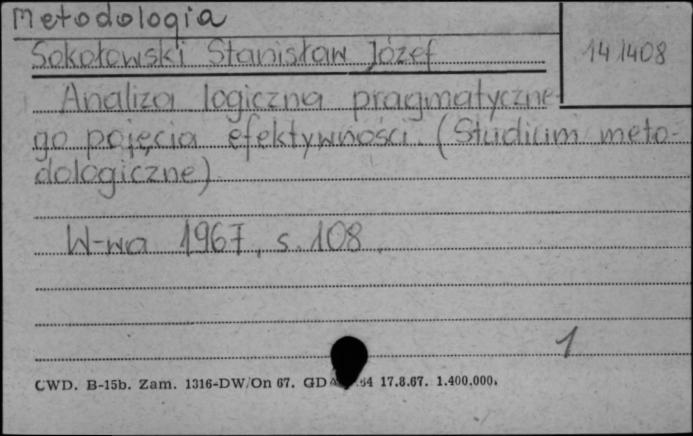 Metodologia
Sokołowski Stanisław Józef
141408
Analiza logiczna pragmatyczne-
go pojęcia efektywności. (Studium meto-
dologiczne)
W-wa 1967, s. 108.
1
CWD. B-15b. Zam. 1316-DW/On 67. GD 64 17.8.67. 1.400.000.